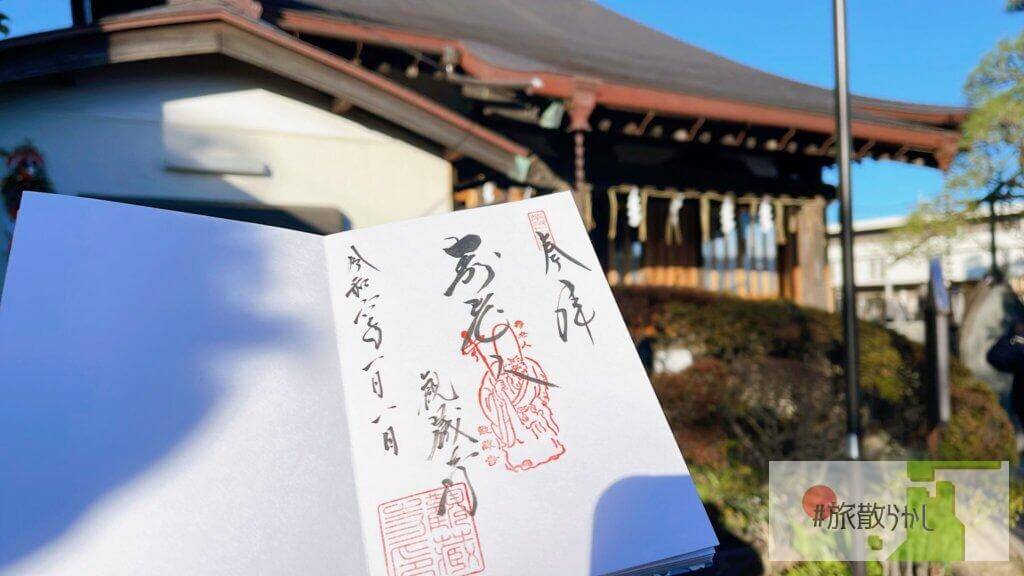 奉拝
寿老人
観蔵寺
令和六年一月一日
#旅散らかし